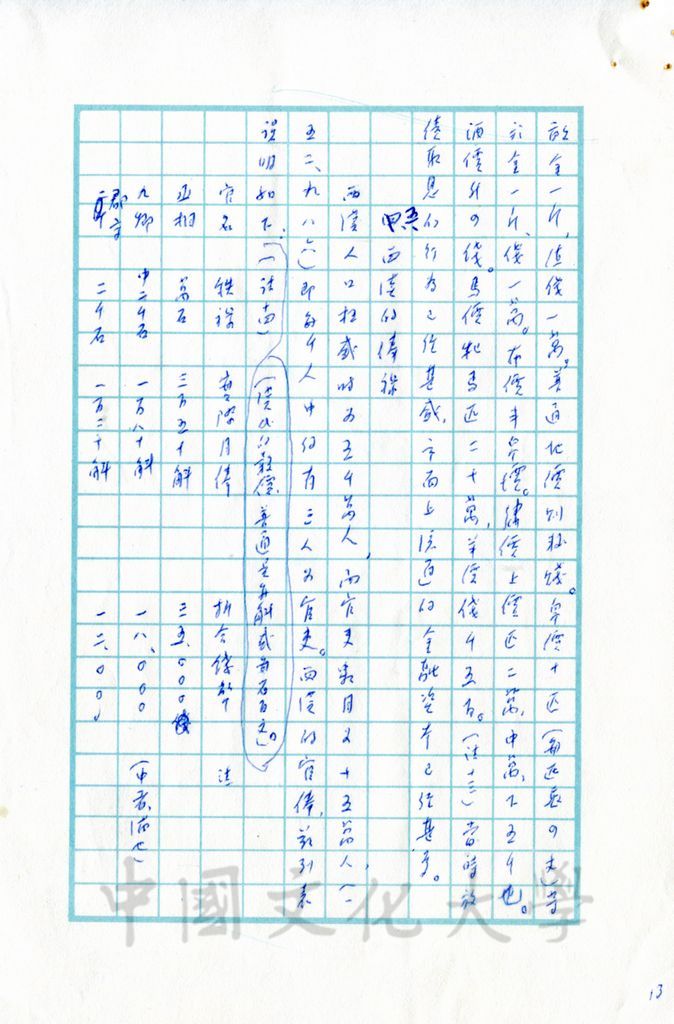 故金一斤,值錢一萬。普通地價則極賤。帛價十匹(每匹長四丈)等
於金一斤、錢一萬。布價半帛價。縑價上價匹二萬,中萬,下五千也。
酒價升四錢。馬價牝馬匹二十萬,羊價錢千五百。(註十三)當時放
債取息的行為已經甚盛,市面上流通的金融資本已經甚多。
西漢的俸祿
西漢人口極盛時為五千萬人,而官吏數目為十五萬人,(一
五二、九八六)即每千人中約有三人為官吏。西漢的官俸,茲列表
說明如下:(註十四)(漢代穀價普通是每斛或每石百文)。
官名 秩祿 實際月俸 折合錢數 註
丞相 萬石 三百五十斛 三五、〇〇〇錢
九卿 中二千石 一百八十斛 一八、〇〇〇 (中者滿也)
郡守 二千石 一百二十斛 一二、〇〇〇
中國文化大學
13